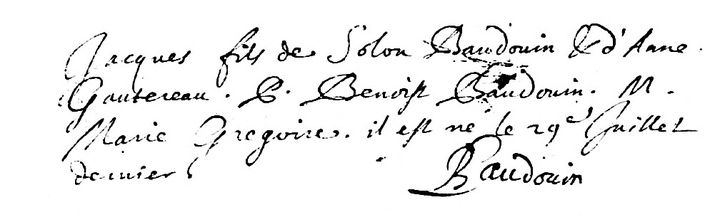 Jacques fils de Solon Baudouin & d'Anne
Gautereau. P. Benoist Baudouin. M.
Marie Gregoire. il est ne le 29e Juillet
dernier.
Baudouin